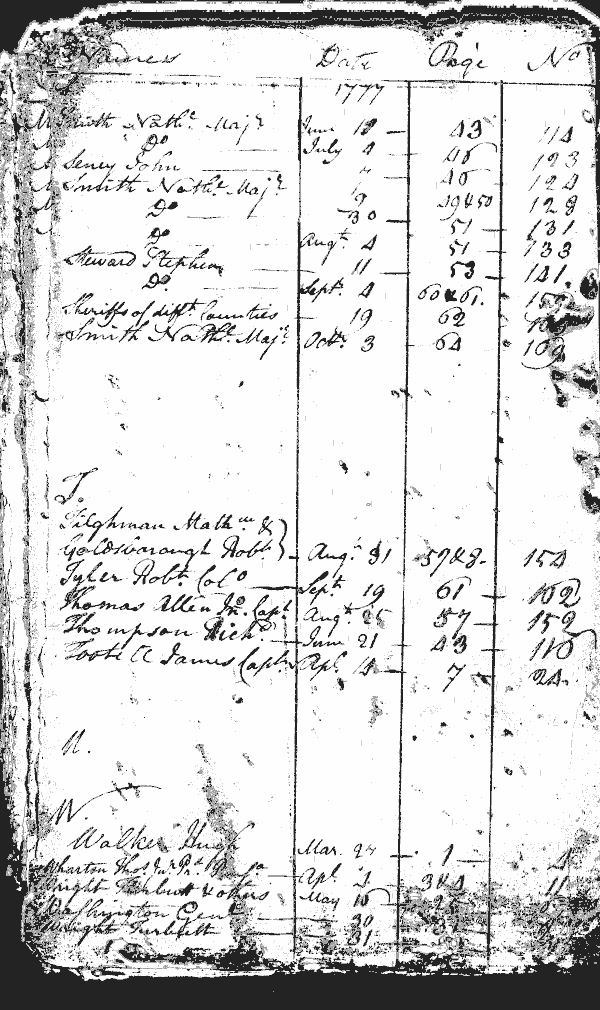 Names Date Page No
S. 1777
Smith Nath.l Maj.r June 18 43 114
Do July 4 46 123
Seney John 7 46 124
Smith Nath.l Maj.r 9 49&50 128
Do 30 51 131
Do Aug.t 4 51 133
Steward Stephen 11 53 141.
Do Sept. 4 60&61.
Sheriffs of diff.t Counties 19 62
Smith Nath.l Maj.r Oct.r 3 64
T.
Tilghman Math.w &
Goldsborough Rob.t Aug.t 31 57&8. 154
Tyler Rob.t Col.o Sept. 19 61 162
Thomas Allen Jn.r Capt. Aug.t 25 57 152
Thompson Rich.d June 21 43 116
Toott A James Capt. Apl. 14 7 24.
U.
W.
Walker Hugh Mar. 24 1 4
Wharton Tho.s Jn.r Apl. 4 3&4 11
Wright Turbutt & others May 10
Washington Gen.l 30
Wright Turbutt 31